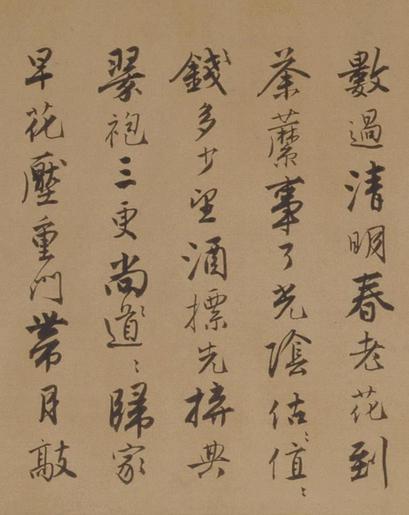 數過清明春老花到
荼蘼事了光陰估〻值〻
錢多少望酒摽先拚典
翠袍三更尚道〻歸家
早花壓重門帶月敲